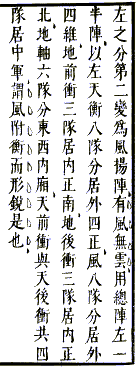 左之分第二變爲風揚陣有風無雲用總陣左一
半陣以左天衡八隊分居外四正風八隊分居外
四維地前衝三隊居内正南地後衝三隊居内正
北地軸六隊分東西内廂天前衝與天後衝共四
隊居中軍謂風附衡而形銳是也